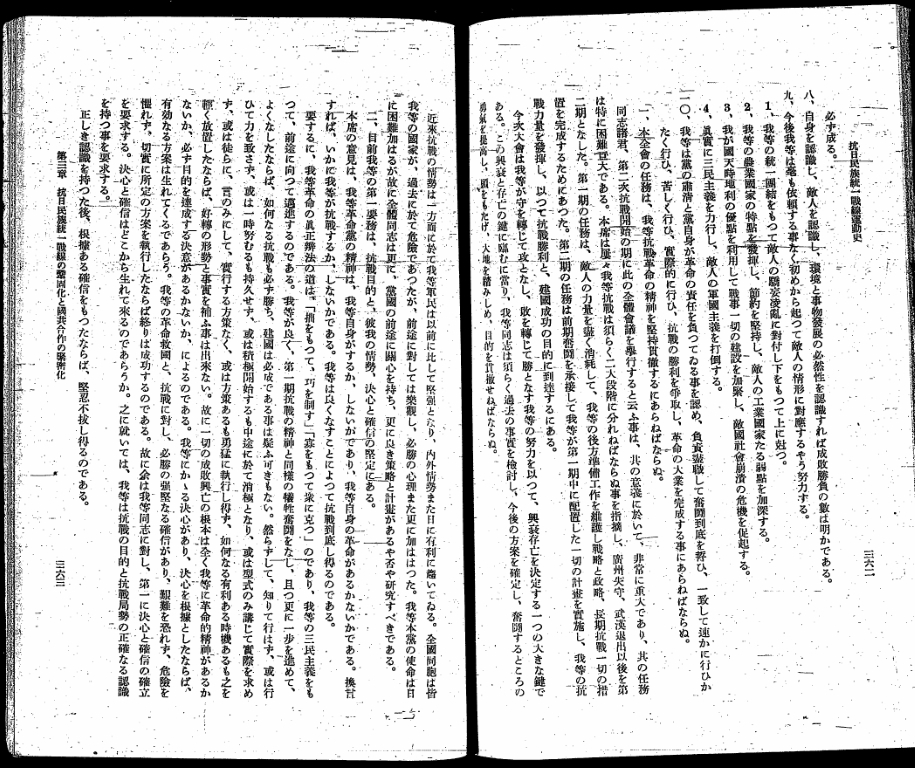 抗日民族統一戰線運動史
三六二
必ず成る。
八、自身を認識し、敵人を認識し、環境と事物發展の必然性を認識すれば成敗勝負の數は明かである。
九、今後我等は毫も依頼する事なく初めから起つて敵人の情形に對應するやう努力する。
1、我等の統一團結をもつて敵人の驕妄凌亂に對付し下をもつて上に對つ。
2、我等の農業國家の特點を發揮し、節約を堅持し、敵人の工業國家たる弱點を加深する。
3、我が國天時地利の優點を利用して戰事一切の建設を加緊し、敵國社會崩潰の危機を促起する。
4、眞實に三民主義を力行し、敵人の軍國主義を打倒する。
一〇、我等は黨の肅清と黨員自身が革命の責任を負つてゐる事を認め、負責盡職して奮鬪到底を誓ひ、一致して速かに行ひか
たく行ひ、苦しく行ひ、實際的に行ひ、抗戰の勝利を爭取し、革命の大業を完成する事にあらねばならぬ。
一、本全會の任務は、我等抗戰革命の精神を堅持貫徹するにあらねばならぬ。
同志諸君、第二次抗戰開始の期に此の全體會議を擧行すると云ふ事は、其の意義に於いて、非常に重大であり、其の任務
は特に困難巨大である。本席は屢々我等抗戰は須らく二大段階に分れねばならぬ事を指摘し、廣州失守、武漢退出以後を第
二期となした。第一期の任務は、敵人の力量を盡く消耗して、我等の後方準備工作を維護し戰略と政略、長期抗戰一切の措
置を完成するためにあつた。第二期の任務は前期奮鬪を承接して我等が第一期中に配置した一切の計畫を實施し、我等の抗
戰力量を發揮し、以つて抗戰勝利と、建國成功の目的に到達するにある。
今次大會は我等が守を轉じて攻となし、敗を轉じて勝となす我等の努力を以つて、興衰存亡を決定する一つの大きな鍵で
ある。この興衰と存亡の鍵に臨むに當り、我等同志は須らく、過去の事實を檢討し、今後の方案を確定し、奮鬪するところの
勇氣を提高し、頭をもたげ、大地を踏みしめ、目的を貫徹せねばならぬ。
近來抗戰の情勢は一方面に於て我等軍民は以前に比して堅强となり、內外情勢また日に有利に趨いてゐる。全國同胞は皆
我等の國家が、過去に於て危險であつたが、前途に對しては樂觀し、必勝の心理また更に加はつた。我等本黨の使命は日
に困難加はるが故に全體同志は更に、黨國の前途に關心を持ち、更に良き策略と計畫があるや否や研究すべきである。
二、目前我等の第一要務は、抗戰目的と、彼我の情勢、決心と確信の堅定にある。
本席の意見は、我等革命黨の精神は、我等自身がするか、しないかであり、我等自身の革命があるかないかである。換言
すれば、いかに我等が抗戰するか、しないかである。我等は良くなすことによつて抗戰到底し得るのである。
要するに、我等革命の眞正辯法の道は、「拙をもつて、巧を制す」「寡をもつて衆に克つ」のであり、我等の三民主義をも
つて、前途に向つて邁進するのである。我等が良く、第一期抗戰の精神と同樣の犧牲奮鬪をなし、且つ更に一步を進めて、
よくなしたならば、如何なる抗戰も必ず勝ち、建國は必成である事は疑ふ可きもない。然らずして、知りて行はず、或は行
ひて力を致さず、或は一時努むるも持久せず、或は積極開始するも中途に於て消極となり、或は型式のみ講じて實際を求め
ず、或は徒らに、言のみにして、實行する方策なく、或は方策あるも勇猛に執行し得ず、如何なる有利ある時機あるも之を
輕く放置したならば、好轉の形勢と事實を補ふ事は出來ない。故に一切の成敗興亡の根本は全く我等に革命的精神があるか
ないか、必ず目的を達成する決意があるかないか、によるのである。我等にかゝる決心があり、決心を根據としたならば、
有効なる方案は生れてくるであらう。我等の革命救國と、抗戰に對し、必勝の强堅なる確信があり、艱難を恐れず、危險を
懼れず、切實に所定の方案を執行したならば終りは成功するのである。故に余は我等同志に對し、第一に決心と確信の確立
を要求する。決心と確信はどこから生れて來るのであらうか。之に就いては、我等は抗戰の目的と抗戰局勢の正確なる認識
を持つ事を要求する。
正しき認識を持つた後、根據ある確信をもつたならば、堅忍不拔し得るのである。
第三章 抗日民族統一戰線の鞏固化と國共合作の緊密化
三六三